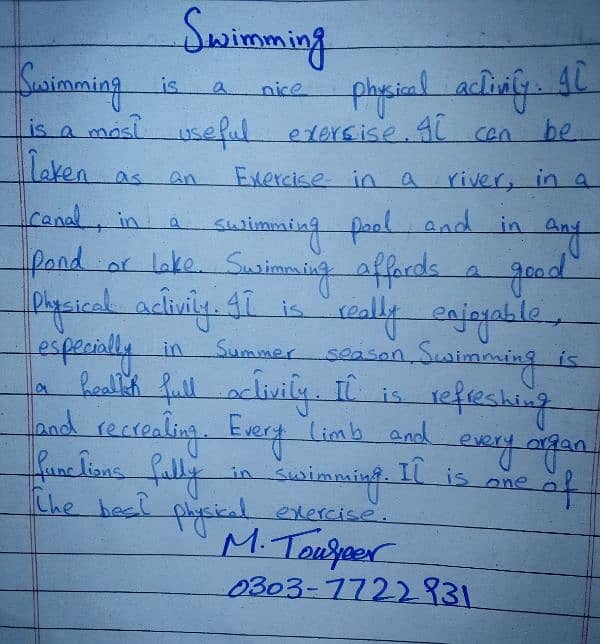 Swimming
Swimming is a nice physical activity. It
is a most useful exersise. It can be
taken as an Exercise in a river, in a
canal, in a swimming pool and in any
Pond or lake. Swimming affords a good
Physical activity. It is really enjoyable,
especially in Summer season. Swimming is
a health full activity. It is refreshing
and recreating. Every limb and every organ
functions fully in swimming. It is one of
the best physical exercise.
M. Touqeer
0303-7722931